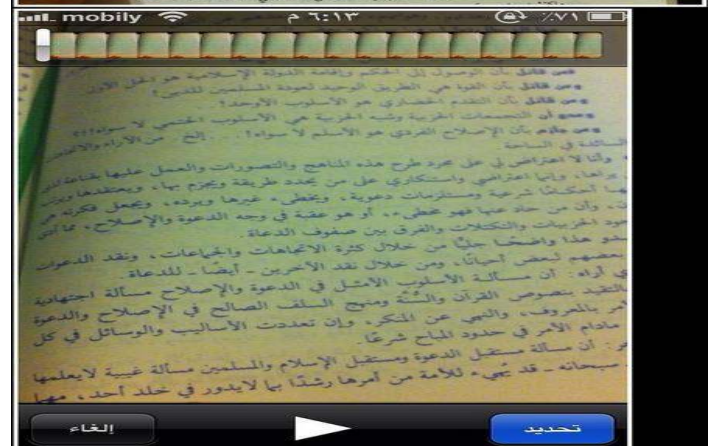 mobily ٦:١٣ م ٪٧١
فمن قائل بأن الوصول إلى الحكم وإقامة الدولة الإسلامية هو الحل الأول.
ومن قائل بأن القوة هي الطريق الوحيد لعودة المسلمين للدين!
ومن قائل بأن التقدم الحضاري هو الأسلوب الأوحد!
ومن أن التجمعات الحزبية وشبه الحزبية هي الأسلوب الحتمي لا سواه!!؟
ومن جازم بأن الإصلاح الفردي هو الأسلم لا سواه! . . إلخ. من الآراء
السائدة في الساحة
وأنا لا اعتراض لي على مجرد طرح هذه المناهج والتصورات والعمل عليها
يراها، وإنما اعتراضي واستنكاري على من يحدد طريقة ويجزم بها، ويعتقدها
أحكامًا شرعية ومستلزمات دعوية، ويخطىء غيرها ويرده، ويجعل فكرته هي
وأن من حاد عنها فهو مخطىء، أو هو عقبة في وجه الدعوة والإصلاح، مما
الحزبيات والتكتلات والفرق بين صفوف الدعاة.
هذا واضحًا جليًّا من خلال كثرة الاتجاهات والجماعات، ونقد الدعوات
بعضهم لبعض أحيانًا، ومن خلال نقد الآخرين - أيضًا - للدعاة.
أراه: أن مسألة الأسلوب الأمثل في الدعوة والإصلاح مسألة اجتهادية
التقيد بنصوص القرآن والسُّنَّة ومنهج السلف الصالح في الإصلاح والدعوة
بالمعروف، والنهي عن المنكر، وإن تعددت الأساليب والوسائل في كل
مادام الأمر في حدود المباح شرعًا.
أن مسألة مستقبل الدعوة ومستقبل الإسلام والمسلمين مسألة غيبية لايعلمها
سبحانه - قد تهيىء للأمة من أمرها رشدًا بما لايدور في خلد أحد، مهما
إلغاء
تحديد